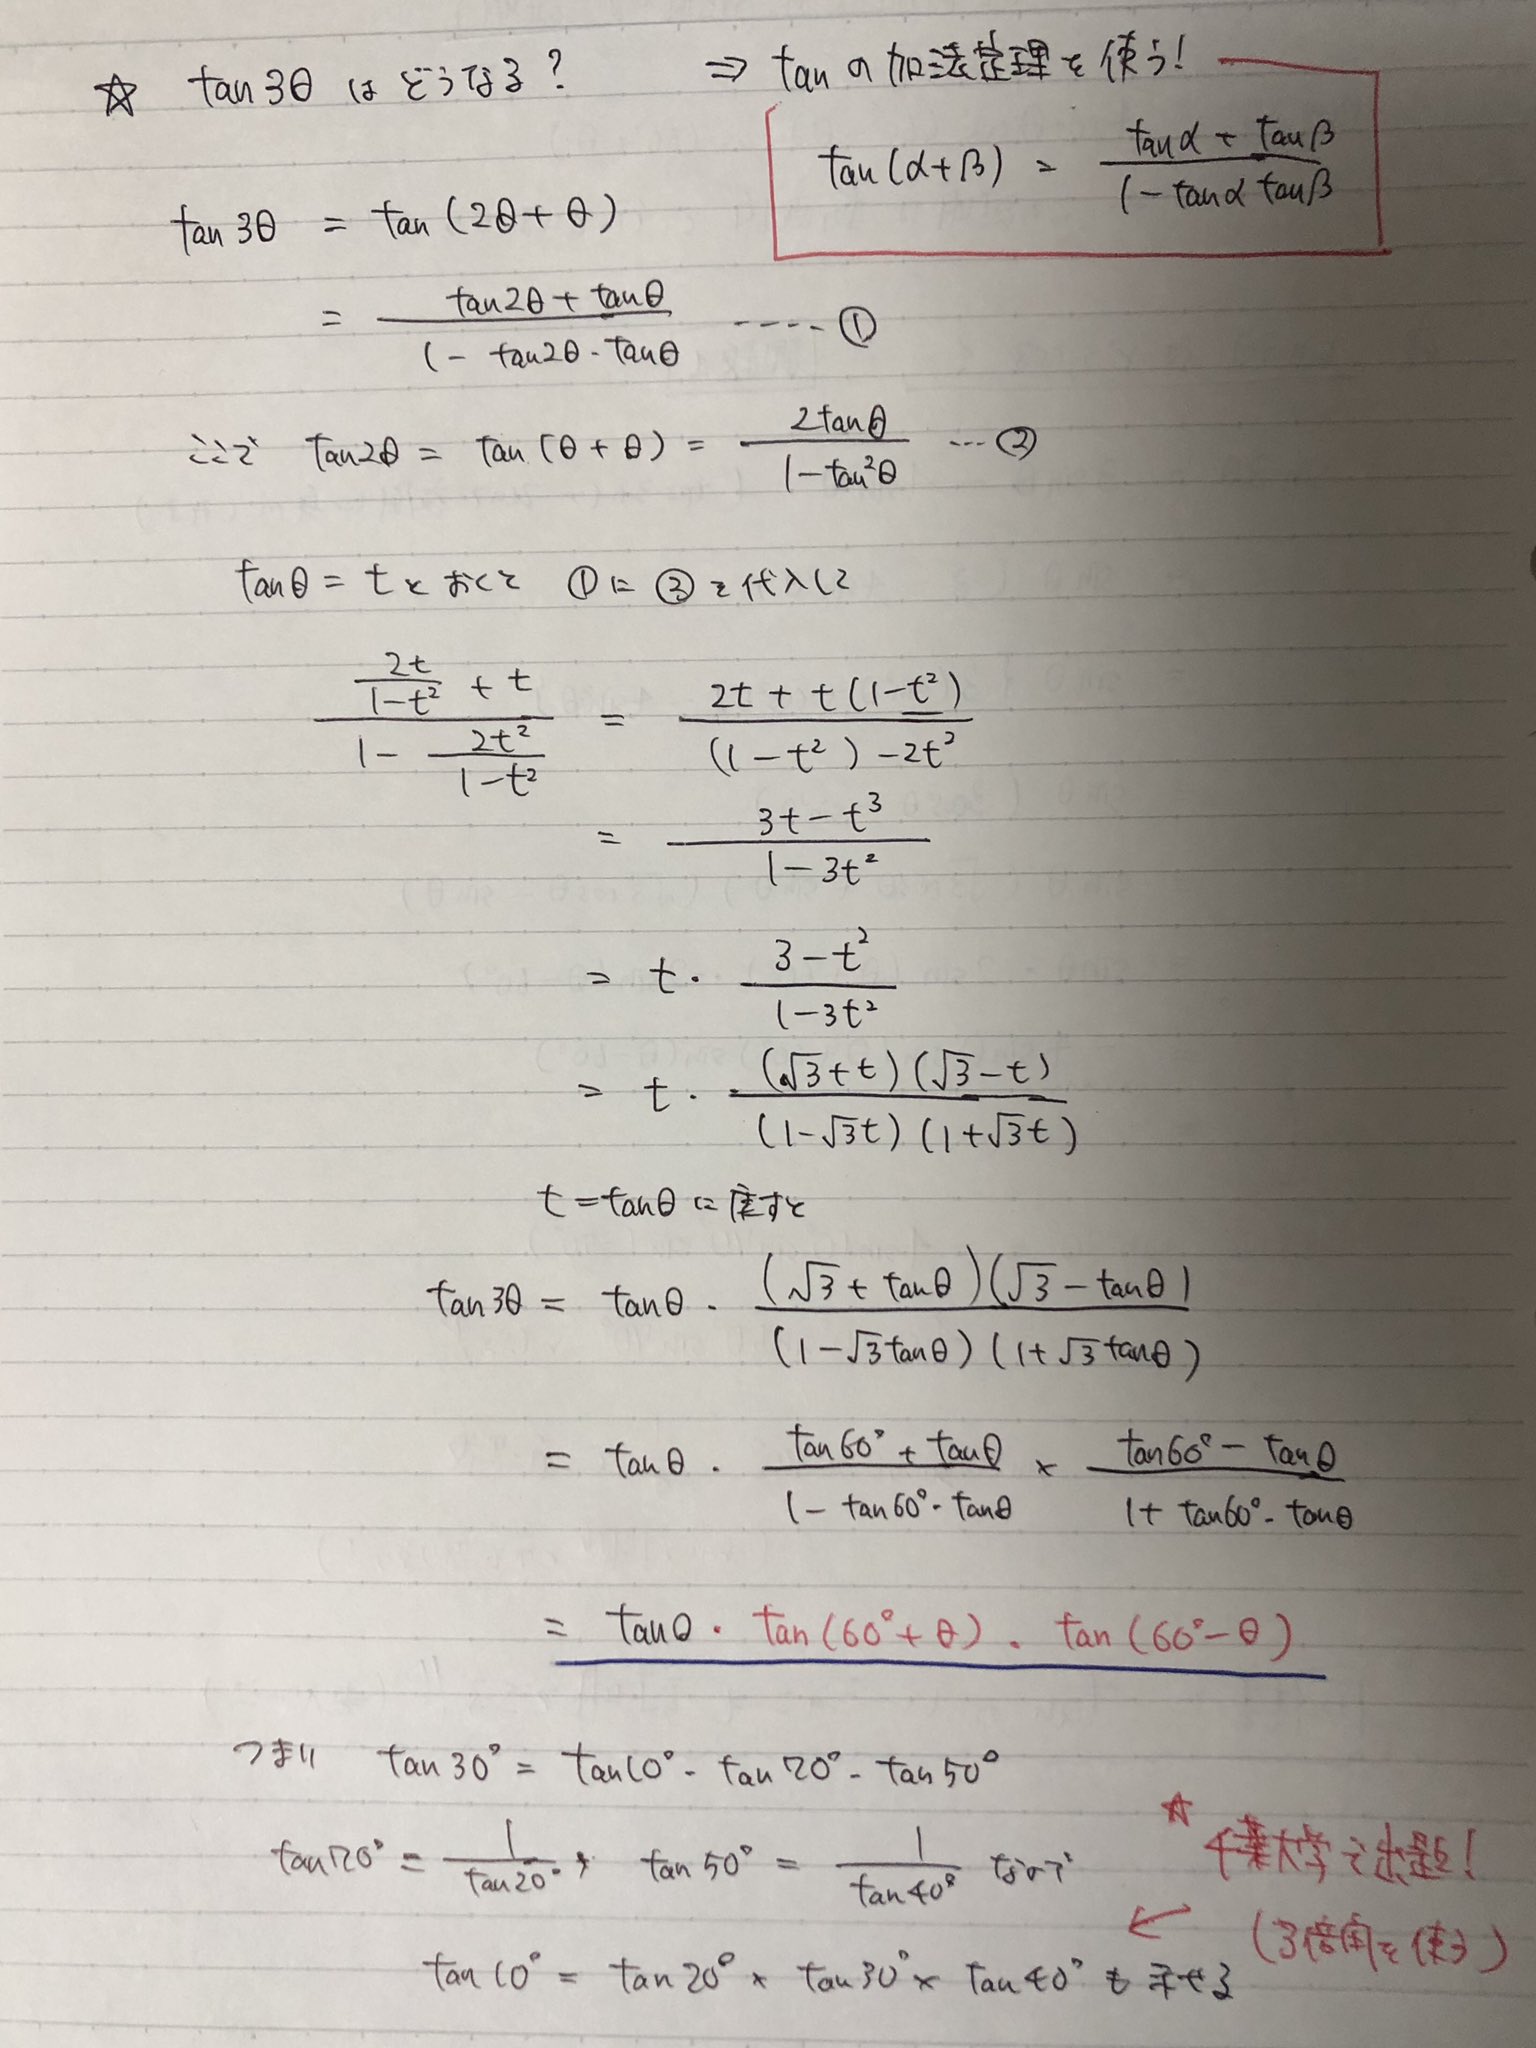 ☆ tan3θ はどうなる? ⇒ tanの加法定理を使う!
tan(α+β) = (tanα + tanβ)/(1-tanα tanβ)
tan3θ = tan(2θ+θ)
= (tan2θ+tanθ)/(1-tan2θ・tanθ) ----- ①
ここで tan2θ = tan(θ+θ) = 2tanθ/(1-tan²θ) --- ②
tanθ = t とおくと ①に②を代入して
(2t/(1-t²) + t)/(1 - 2t²/(1-t²)) = (2t + t(1-t²))/((1-t²)-2t²)
= (3t-t³)/(1-3t²)
= t・(3-t²)/(1-3t²)
= t・(√3+t)(√3-t)/(1-√3t)(1+√3t)
t = tanθに戻すと
tan3θ = tanθ・(√3+tanθ)(√3-tanθ)/(1-√3tanθ)(1+√3tanθ)
= tanθ・(tan60°+tanθ)/(1-tan60°・tanθ) × (tan60°-tanθ)/(1+tan60°・tanθ)
= tanθ・tan(60°+θ)・tan(60°-θ)
つまり tan30° = tan10°・tan70°・tan50°
tan70° = 1/tan20°, tan50° = 1/tan40° なので
☆千葉大学で出題!
← (3倍角を使う)
tan10° = tan20° × tan30° × tan40° も示せる